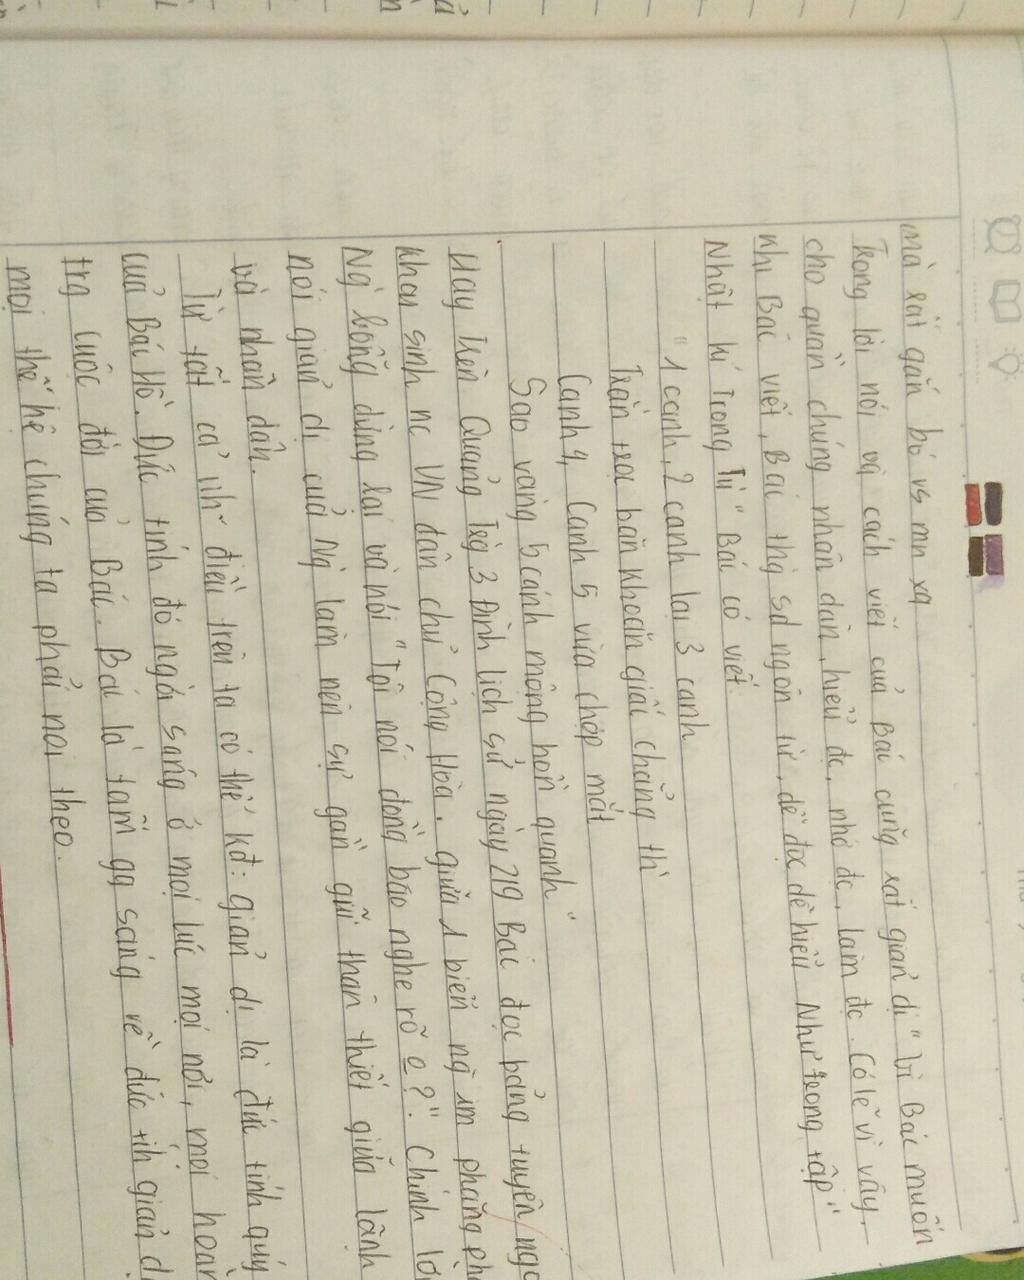 mà rất gắn bó vs mn xq
Trong lời nói và cách viết của Bác cũng rất giản dị "Vì Bác muốn
cho quần chúng nhân dân, hiểu đc, nhớ đc, làm đc. Có lẽ vì vậy,
khi Bác viết, Bác thg sd ngôn từ, dễ đọc dễ hiểu Như trong tập "
Nhật kí Trong Tù" Bác có viết
"1 canh, 2 canh lại 3 canh
Trằn trọc băn khoăn giấc chẳng th`
Canh 4, Canh 5 vừa chợp mắt
Sao vàng 5 cánh mộng hồn quanh"
Hay trên Quảng Trg 3 Đình lịch sử ngày 219 Bác đọc bảng tuyên ngo
khai sinh nc VN dân chủ Cộng Hòa. giữa 1 biển ng im phăng ph
Ng` bỗng dừng lại và hỏi "Tôi nói đồng bào nghe rõ o?". Chính lơ
nói giản dị của Ng` làm nên sự gần gũi thân thiết giữa lãnh
và nhân dân.
Từ tất cả nh~ điều trên ta có thể kđ: giản dị là đức tính quý
của Bác Hồ. Đức tính đó ngời sáng ở mọi lúc mọi nơi, mọi hoàn
trg cuộc đời của Bác. Bác là tấm gg sáng về đức tíh giản d
mọi thế hệ chúng ta phải noi theo.